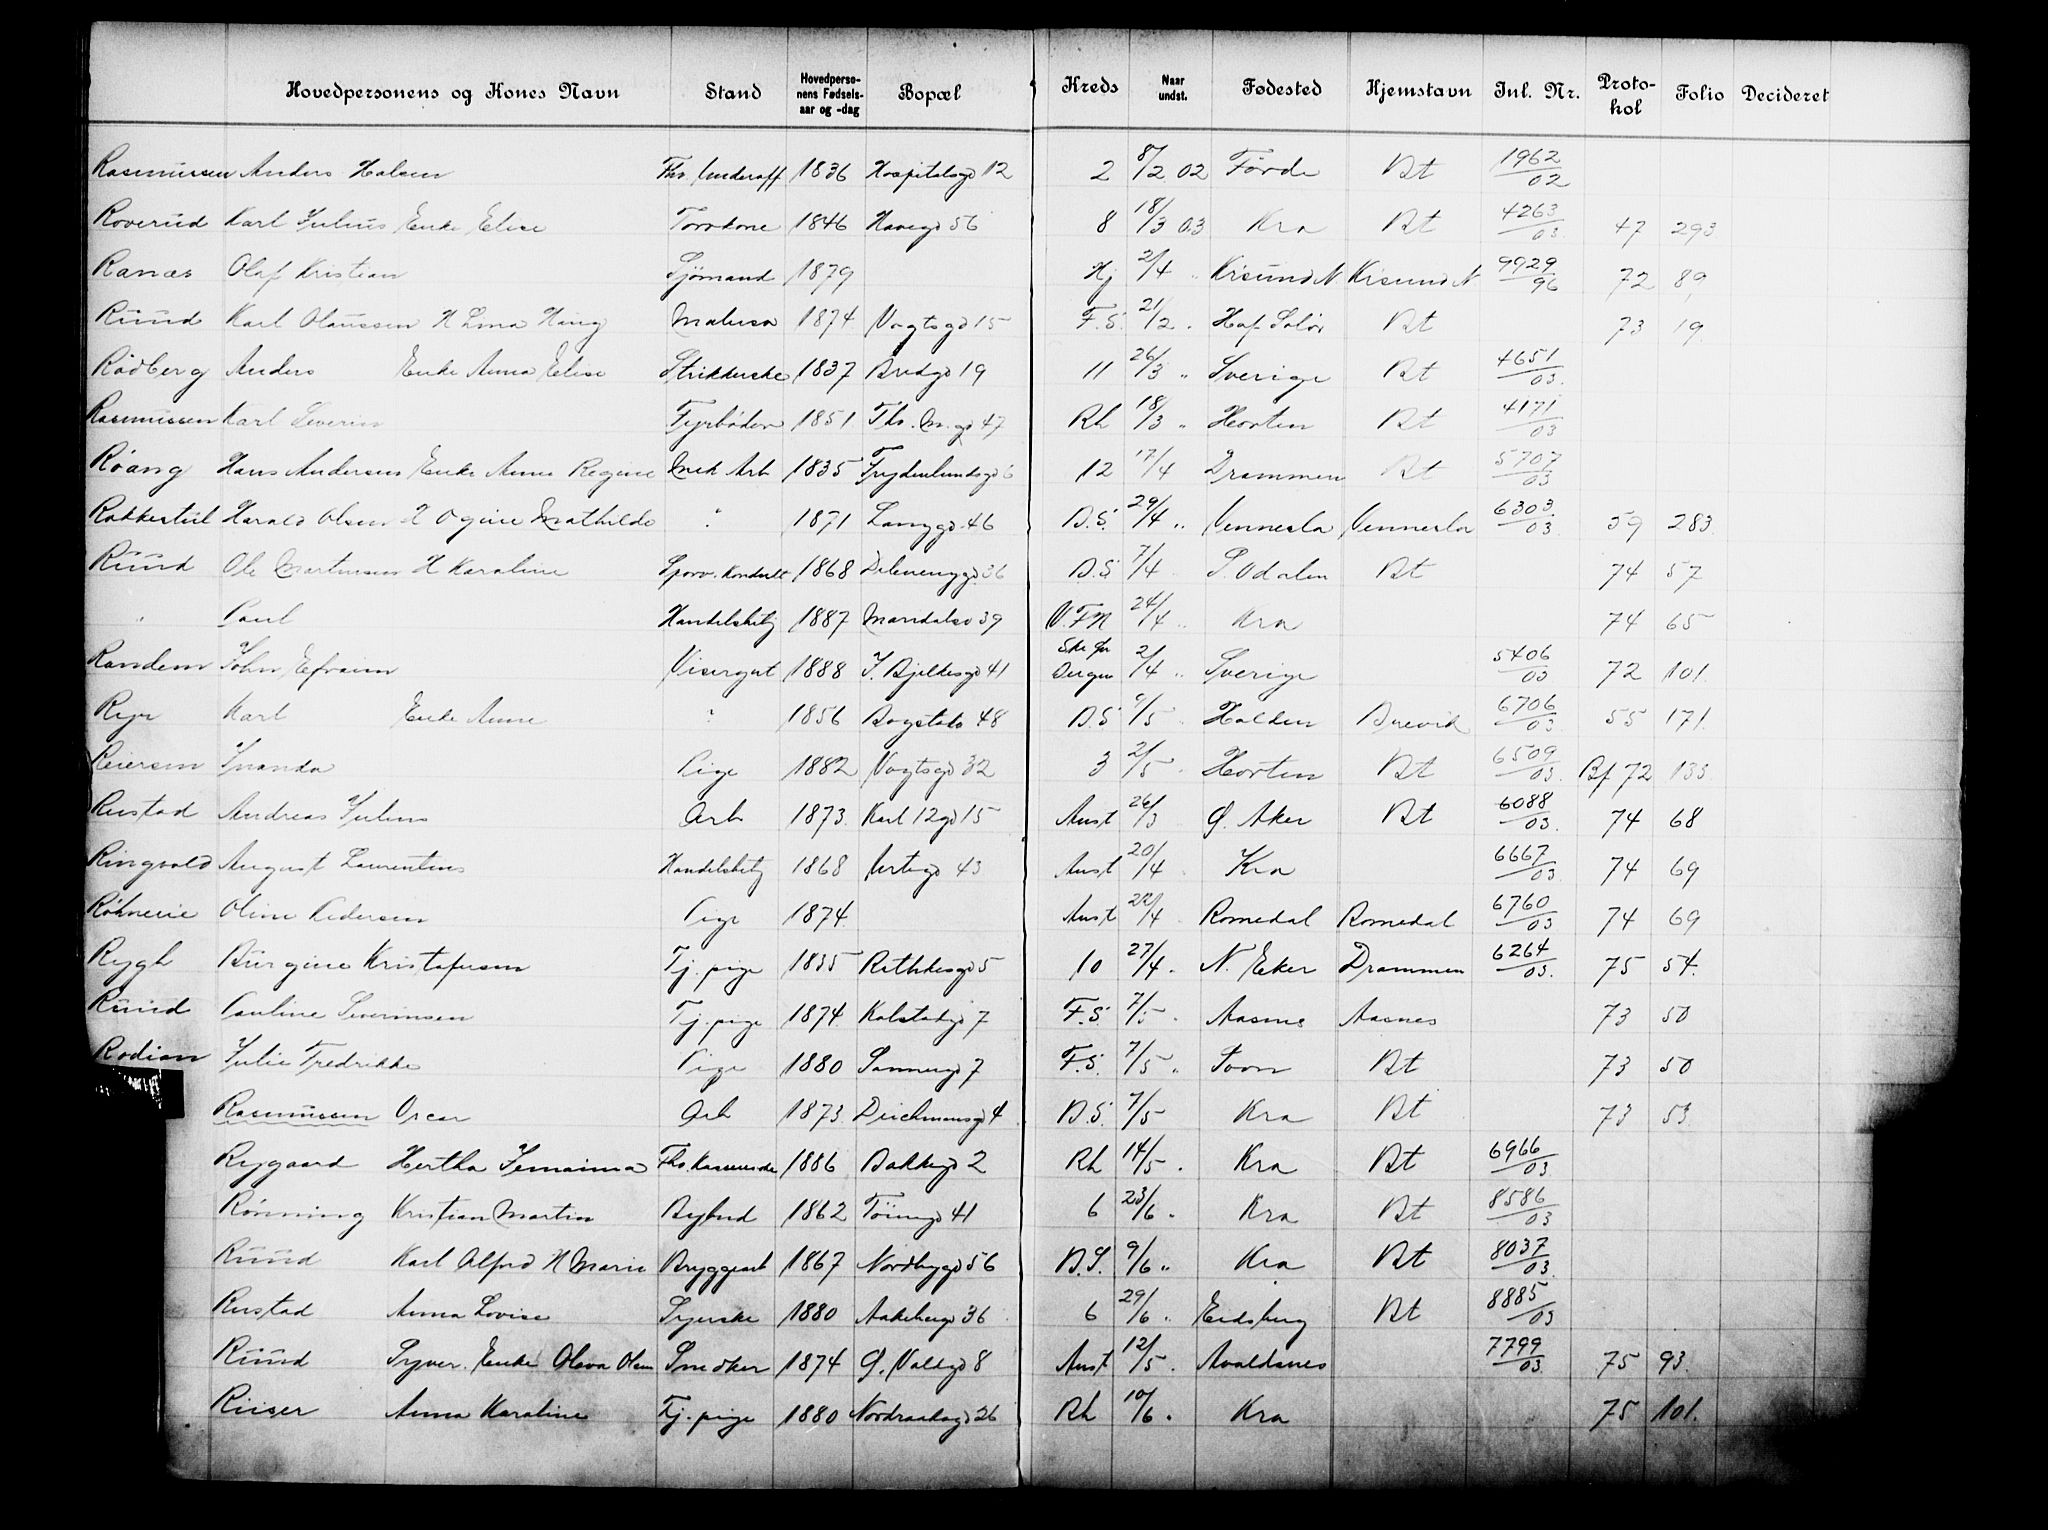 Hovedpersonens og Kones Navn Stand Hovedpersonens Fødselsaar og -dag Bopæl Kreds Naar undst. Fødested Hjemstavn Inl. Nr. Protokol Folio Decideret
Rasmussen Anders Halsen Fhv. Underoff 1836 Hospitalsgd 12 2 8/2 02 Førde Bt 1962/02
Roverud Karl Julius Enke Elise Torvkone 1846 Havegd 56 8 18/3 03 Kra Bt 4263/03. 47 293
Ranæs Olaf Kristian Sjömand 1879 Hj 2/4 " Krisund N Krisund N 9929/96 72 89
Ruud Karl Olaussen H Maleren 1874 Vogtsgd 15 F.S. 21/2 " Hof Solör Bt 73 19.
Rödberg Anders Enke Anna Elise Strikkerske 1837 Bredgd 19 11 26/3 " Sverige Bt 4651/03.
Rasmussen Karl Severin Fyrböder 1851 Th. M. gd 47 Rh 18/3 " Horten Bt 4171/03
Röang Hans Andersen Enke Anne Regine Med Arb 1835 Frydenlundsgd 6 12 17/4 Drammen Bt 5707/03
Rakkestul Harald Olsen H Ogine Mathilde " 1871 Langgd. 46 B.S. 29/4 " Vennesla Vennesla 6303/03. 59 283.
Ruud Ole Martinsen H Karoline Sporv. Kondukt 1868 Delenenggd. 36 B.S. 7/4 S. Odalen Bt 74 57
" Paul Handelsbetj 1887 Maridalsv 39 V.FM 24/4 " Kra 74 65
Randem John Efraim Visergut 1888 J. Bjelkesgd 41 Bergen 2/4 " Sverige 5406/03 72 101.
Karl Enke Anne " 1856 Bogstadv 48 B.S. /5 Halden Brevik 6706/03. 55 171.
Reiersen Inanda Pige 1882 Vogtsgd 32 3 2/5 Horten Bt 6509/03. Bf 72 135.
Rustad Andreas Julius Arb 1873. Karl 12 gd 15 Aust 26/3 Ø. Aker Bt 6088/03. 74 68
Ringvold August Laurentius Handelsbetj 1868 43 Aust 20/4 Kra 6667/03. 74 69
Oline Pedersen Pige 1874. Aust 22/4 Romedal Romedal 6760/03 74 69
Rygh Burgine Kristofersen Tj. pige 1835 Rathkesgd 5 10 27/4. N. Eker Drammen 6264/03. 75 54.
Ruud Pauline Severinsen Tj. pige 1874. Kalstadgd 7 F.S. 7/5. Aasnes Aasnes 73 50
Rodian Julie Fredrikke Pige 1880 Sannergd 7 F.S. 7/5 " Toon Bt 73 50
Rasmussen Oscar Arb 1873. Deichmansgd 4 B.S. 7/5 Kra Bt 73 53
Rygaard Hertha Jemaima Fhv. Kasserske 1886 Bakkegd 2 Rh 14/5. Kra Bt 6966/03
Rönning Kristian Martin Bybud 1862 Töiengd 41 6 23/6 " Kra Bt 8586/03
Ruud Karl Alfred H Marie Bryggearb 1867 Nordbygd 56 B.S. 9/6 " Kra Bt 8037/03.
Rustad Anna Lovise Syerske 1880 Aakebergd 36 6 29/6 " Eidsberg Bt 8885/03
Ruud Syver. Enke Oleva Olsen Snedker 1874 G. Vallegd 8 Aust 12/5. Avaldsnes 7799/03. 75 93.
Riiser Anna Karoline Tj. pige 1880 Nordraaksgd 26 Rh 10/6. Kra 75 101.